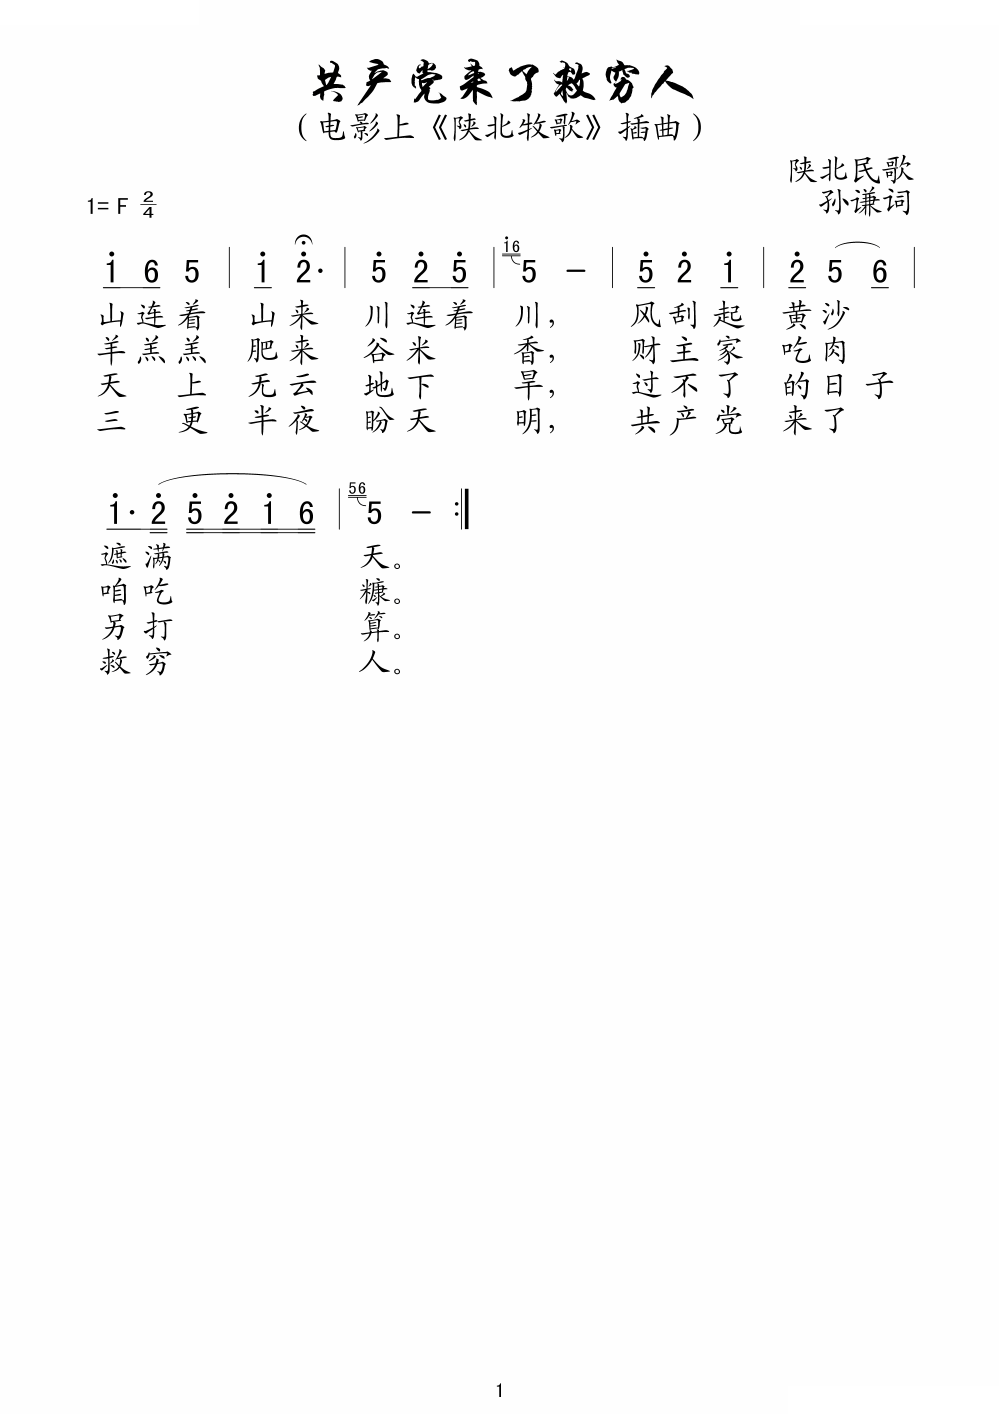 共产党来了救穷人
（电影上《陕北牧歌》插曲）
陕北民歌
1= F 2/4 孙谦词
i 6 5 | i 2̇· | 5̇ 2̇ 5̇ | i6 5 – | 5̇ 2̇ i | 2̇ 5 6 |
山连着 山来 川连着 川， 风刮起 黄沙
羊羔羔 肥来 谷米 香， 财主家 吃肉
天上 无云 地下 旱， 过不了 的日子
三更 半夜 盼天 明， 共产党 来了
i· 2̇ 5̇ 2̇ i 6 | 56 5 – :|
遮满 天。
咱吃 糠。
另打 算。
救穷 人。
1